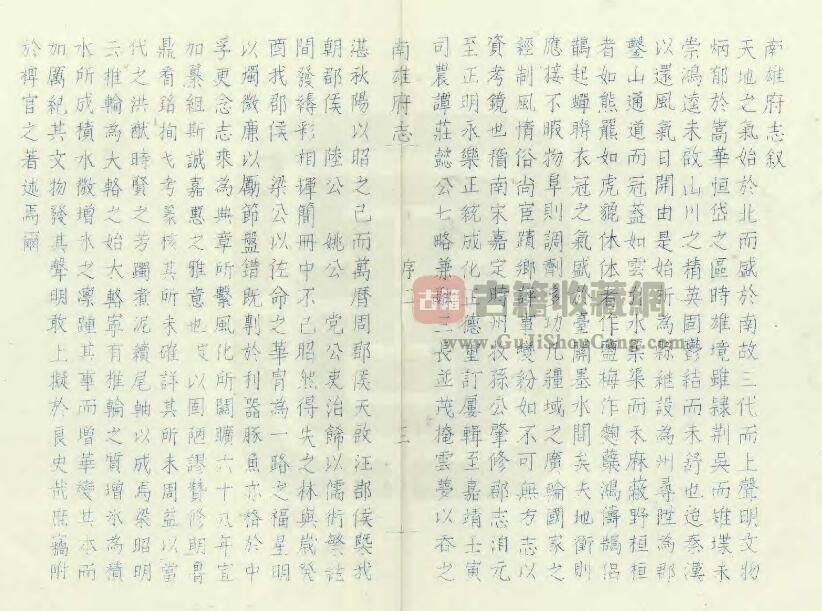 南雄府志叙
天地之氣始於北而盛於南故三代而上聲明文物
炳郁於嵩華恒岱之區時雄境雖隸荆吳而雉堞未
崇鴻遠未啟山川之精英固鬱結而未舒也迨秦漢
以還風氣日開由是始所為縣継設為州尋陞為郡
鑿山通道而冠盖如雲水渠而禾麻蔽野桓桓
者如熊羆如虎貔休休者作鹽梅作麴糵鴻儔鵠侶
鵲起蟬聯衣冠之氣墨水間矣夫地衝則
應接不暇物阜則調劑多功凡疆域之廣輪國家之
經制風情俗尚宦蹟鄉事變紛如不可無方志以
資考鏡也稽南宋嘉定時州牧孫公肇修郡志洎元
至正明永樂正統成化正德重訂屢輯至嘉靖壬寅
司農譚莊懿公七略兼三長並茂掩雲夢以吞之
南雄府志
序
三
湛秋陽以昭之已而萬曆周郡侯天啟汪郡侯暨我
朝郡侯 陸公 姚公 党公吏治餙以儒術繁詿
間發縟彩相揮簡冊中不已昭然得失之林與歲癸
酉我郡侯 梁公以佐命之華胄為一路之福星明
以燭微廉以勵節盤錯既剸於利器豚魚亦格於中
孚更念志乘為典章所繫風化所關曠六十八年宜
加纂組斯誠嘉惠之雅意也以固陋謬贊修明魯
鼎看銘拘戈考篆核其所未確詳其所未周益以當
代之洪猷時賢之芳躅煮泥續尾軸以成焉梁昭明
云椎輪為大輅之始大輅寧有推輪之質增氷為積
水所成積水微增氷之凛踵其事而增華變其本而
加厲紀其文物發其聲明敢上擬於良史哉庶竊附
於稗官之著述焉爾
古籍
古籍收藏網
www.GuJiShouCang.com